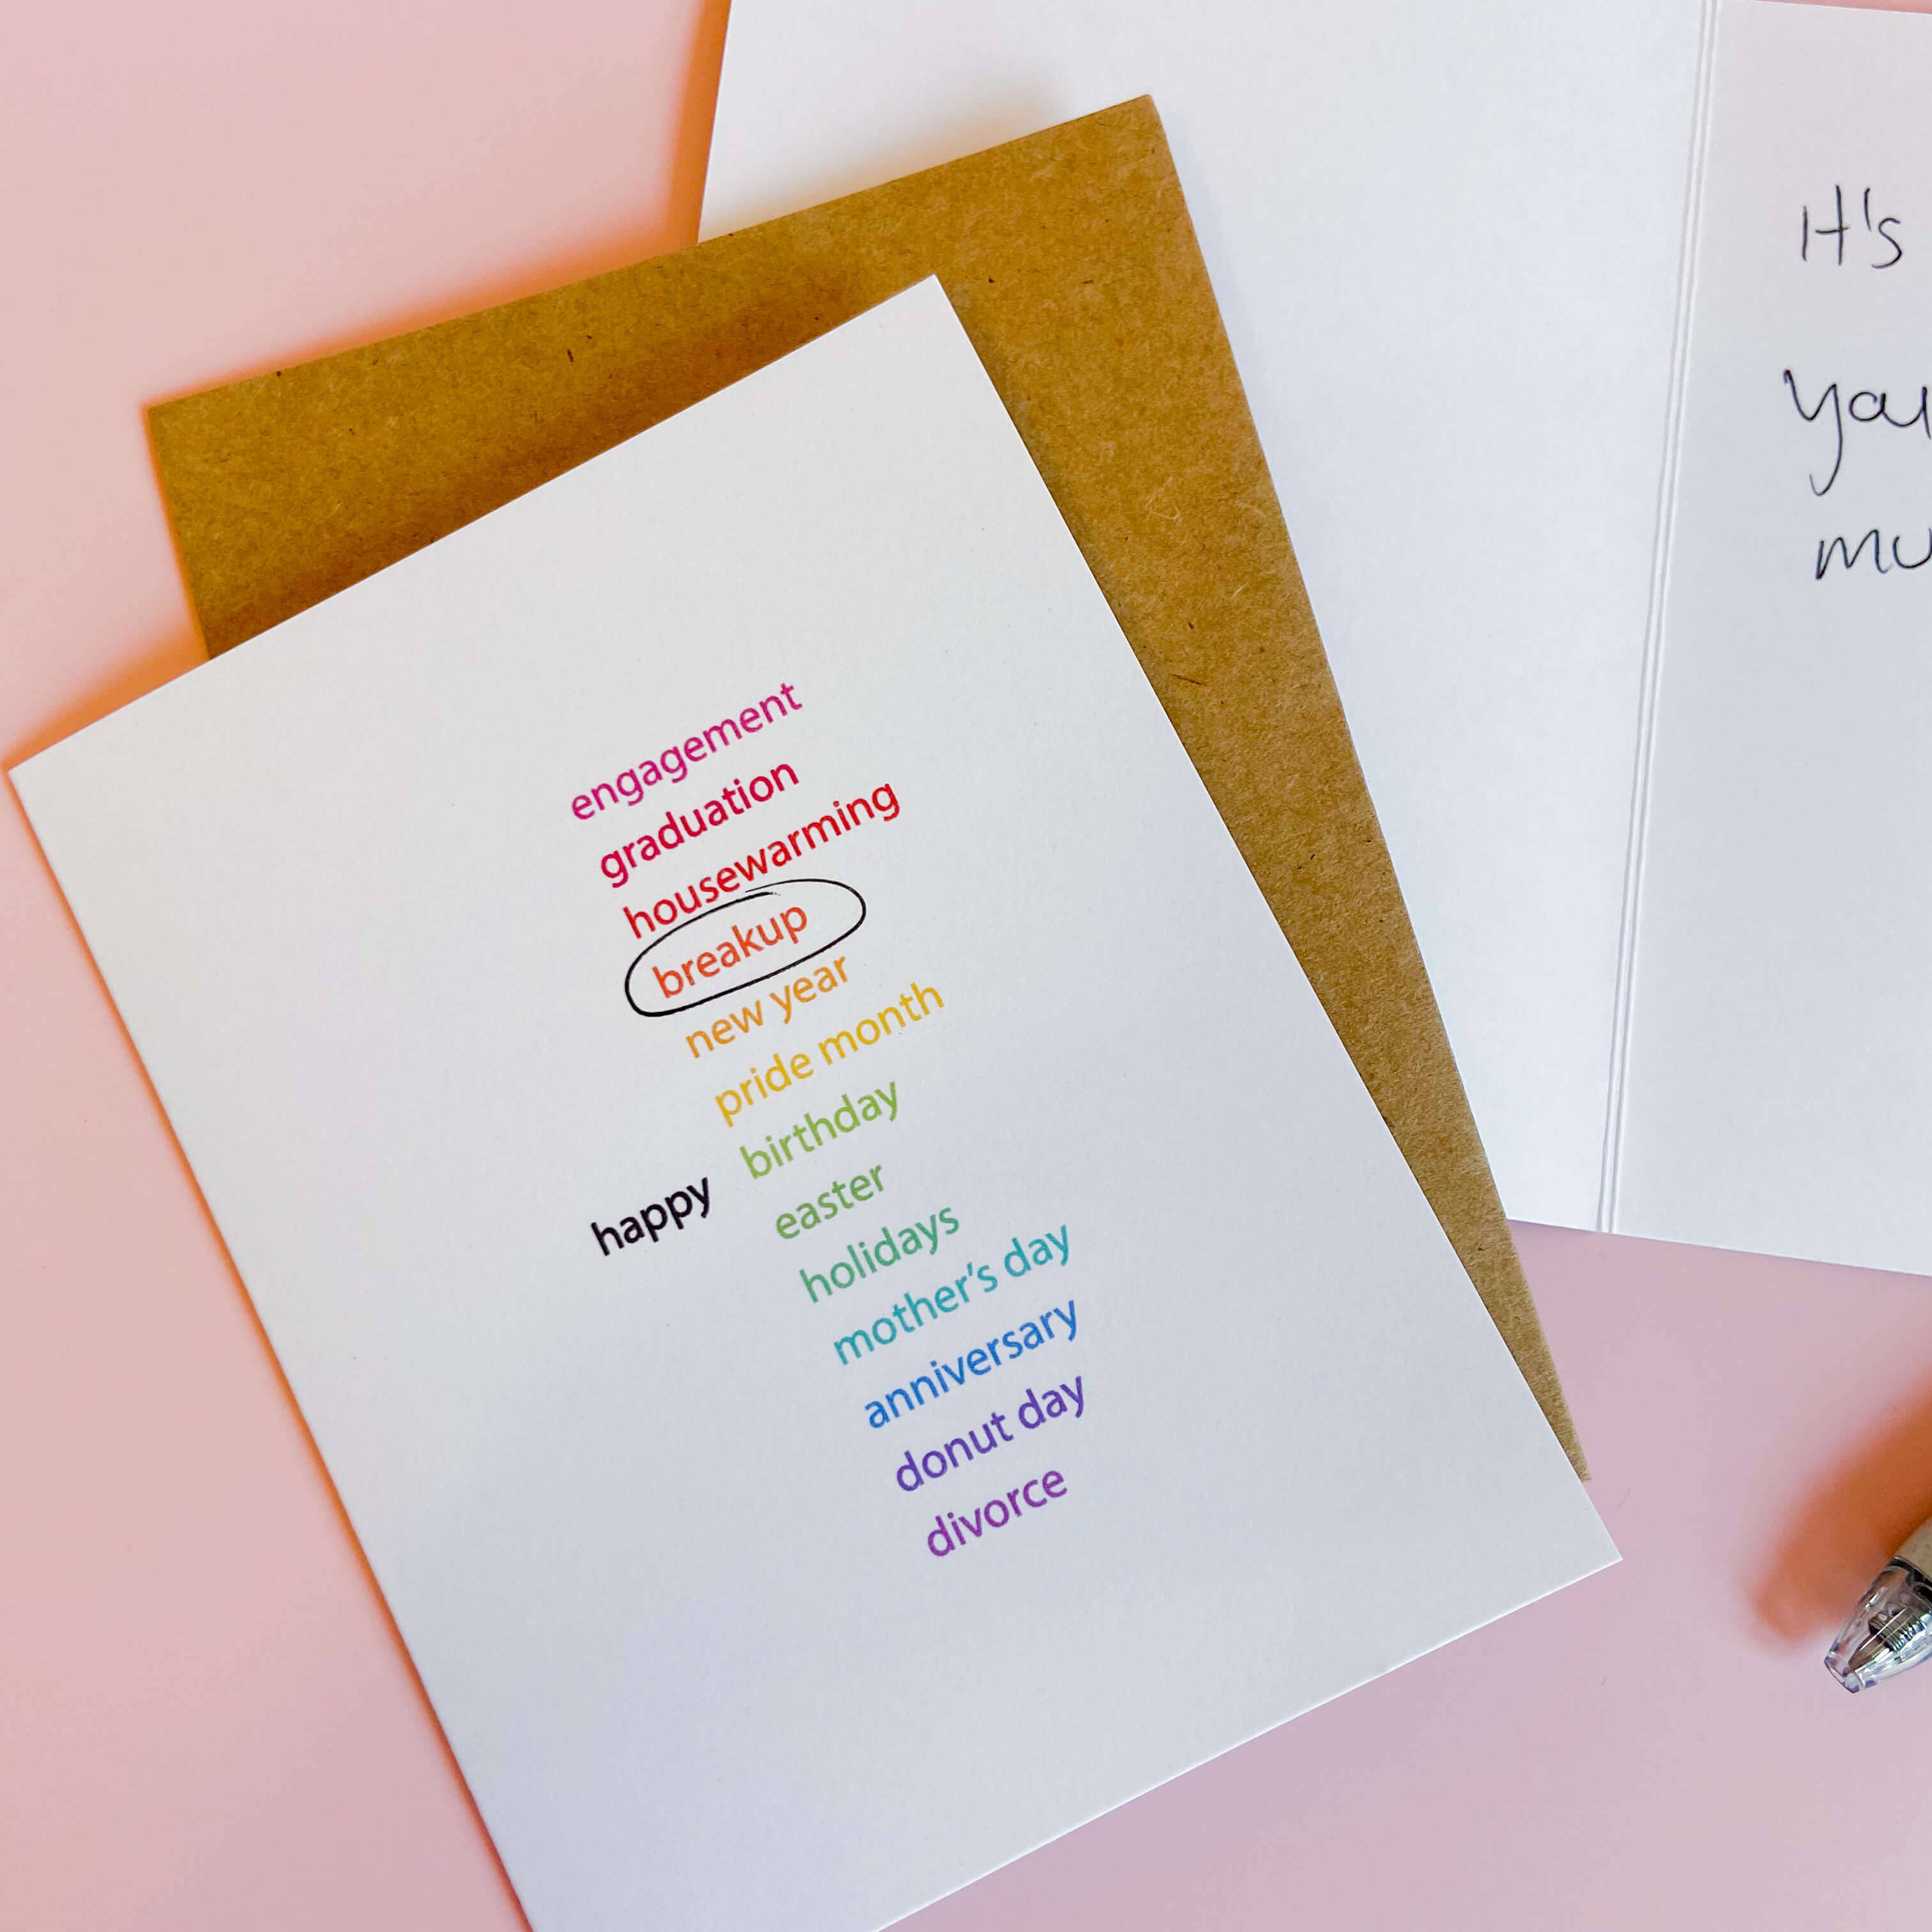 engagement
graduation
housewarming
breakup
new year
pride month
happy birthday
easter
holidays
mother's day
anniversary
donut day
divorce
It's